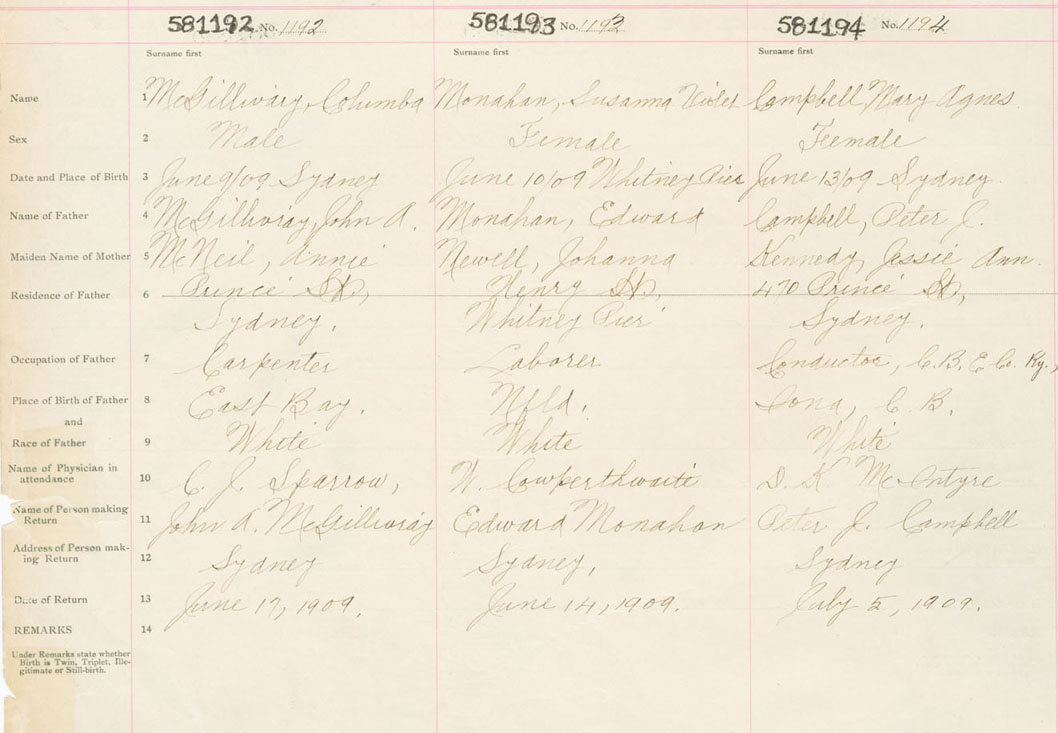 581192 No. 1192 581193 No. 1193 581194 No. 1194
Surname first Surname first Surname first
Name 1 McGillivary, Columba Monahan, Susanna Violet Campbell, Mary Agnes
Sex 2 Male Female Feemale
Date and Place of Birth 3 June 9/09 Sydney June 10/09 Whitney Pier June 13/09 Sydney.
Name of Father 4 McGillivray, John A. Monahan, Edward Campbell, Peter J.
Maiden Name of Mother 5 McNeil, Annie Newell, Johanna Kennedy, Jessie Ann.
Residence of Father 6 Prince St, Henry St, 470 Prince St,
Sydney, Whitney Pier Sydney.
Occupation of Father 7 Carpenter Laborer Conductor, C.B.E. Co. Ry.,
Place of Birth of Father 8 East Bay, Nfld. Iona, C.B.
and
Race of Father 9 White White White
Name of Physician in
attendance 10 C. J. Sparrow, W. Cowperthwaite D. K McIntyre
Name of Person making
Return 11 John A. McGillivray Edward Monahan Peter J. Campbell
Address of Person mak-
ing Return 12 Sydney Sydney, Sydney
Date of Return 13 June 17, 1909. June 14, 1909. July 5, 1909.
REMARKS 14
Under Remarks state whether
Birth is Twin, Triplet, Ille-
gitimate or Still-birth.